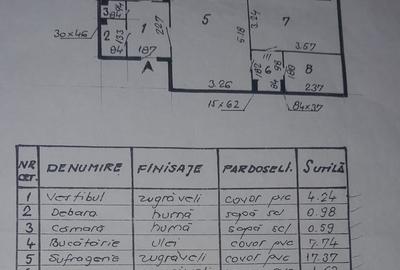 3 84 94
1 227 5 5.18 3.24 7
30x46 2 133
84 187 3.57
182 6 98 180 8
3.26 84 237
15x62 84x37
NR CRT. DENUMIRE FINISAJE PARDOSELI. Sutilă
1 Vestibul zugrăveli covor pvc 4.24
2 Debara humă sapă scl 0.98
3 Camară humă sapă scl 0.59
4 Bucătărie ulei covor pvc 7.74
5 Sufragerie zugrăveli covor pvc 17.37